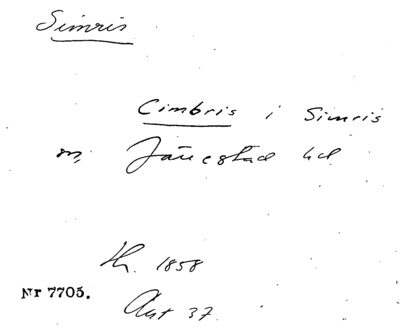 Simris
Cimbris i Simris
sn, Järrestad hd
th. 1858
Nr 7705.
Ant 37